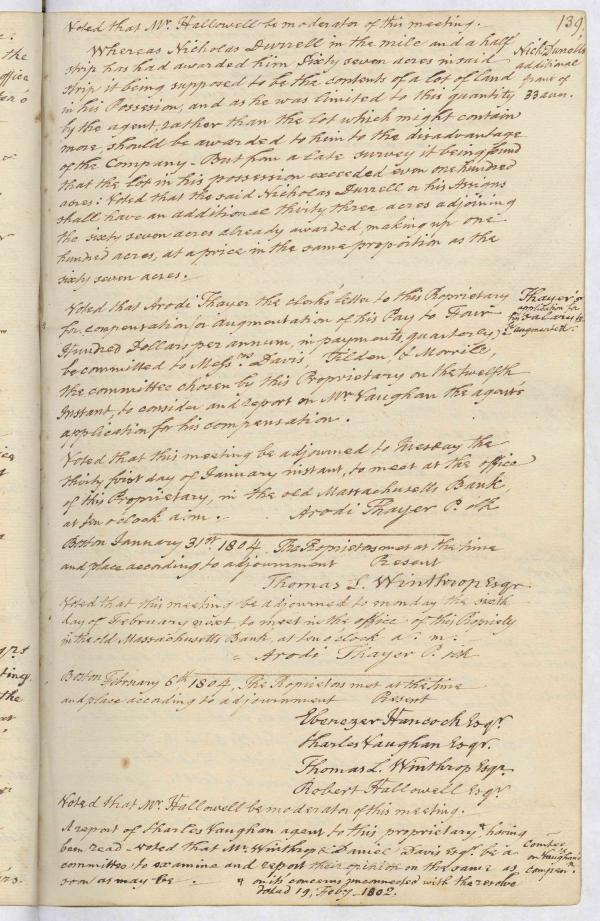 139.
Voted that Mr. Hallowell be moderator of this meeting.
Whereas Nicholas Durrell in the mile and a half
strip has had awarded him Sixty seven acres in said
strip it being supposed to be the contents of a lot of land
in his Possession, and as he was limited to this quantity
by the agent, rather than the lot which might contain
more, should be awarded to him to the disadvantage
of the Company - But from a late survey it being found
that the lot in his possession exceeded even one hundred
acres: Voted that the said Nicholas Durrell or his Assigns
shall have an additional thirty three acres adjoining
the sixty seven acres already awarded, making up one
hundred acres, at a price in the same proportion as the
sixty seven acres.
Nichs. Durrell's
additional
grant of
33 acres.
Voted that Arodi Thayer the clerk's letter to this Proprietary
for compensation or augmentation of his Pay to Four
Hundred Dollars per annum, in payments, quarterly,
be committed to Messrs. Davis, Tilden, & Morrill,
the committee chosen by this Proprietary on the twelfth
Instant, to consider and report on Mr. Vaughan the agent's
application for his compensation.
Thayer's
application for
his Salary to
be augmented.
Voted that this meeting be adjourned to Tuesday the
thirty first day of January instant, to meet at the office
of this Proprietary, in the old Massachusetts Bank,
at ten o'clock a.m. Arodi Thayer P. clk
Boston January 31st. 1804. The Proprietors met at the time
and place according to adjournment Present
Thomas L. Winthrop Esqr.
Voted that this meeting be adjourned to monday the sixth
day of February next, to meet in the office of this Propriety
in the old Massachusetts Bank, at ten o'clock a. m.
Arodi Thayer P. clk
Boston February 6th. 1804. The Proprietors met at the time
and place according to adjournment Present
Ebenezer Hancock Esqr.
Charles Vaughan Esqr.
Thomas L. Winthrop Esqr.
Robert Hallowell Esqr.
Voted that Mr. Hallowell be moderator of this meeting.
A report of Charles Vaughan agent to this proprietary having
been read. Voted that Mr. Winthrop & Daniel Davis Esqr. be a
committee to examine and report their opinion on the same as
soon as may be.
on its concerns unconnected with the resolve
dated 19 Feby. 1802.
on Vaughan's
compen.